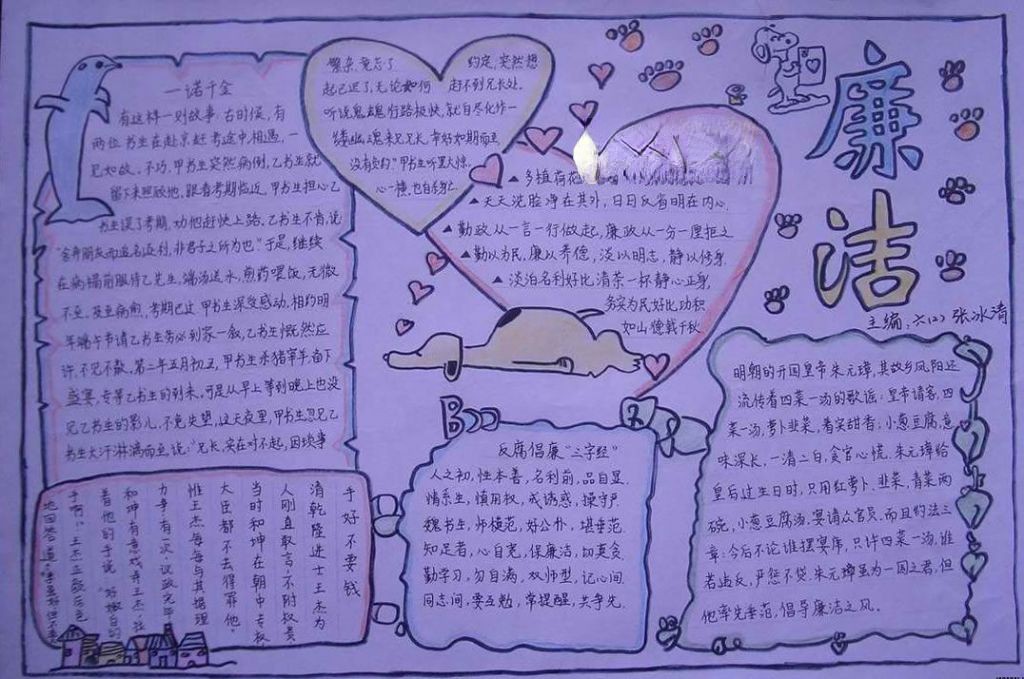 廉洁
主编:六(2) 张冰清
一诺千金
有这样一则故事:古时候,有
两位书生在赴京赶考途中相遇,一
见如故。不巧,甲书生突然病倒,乙书生就
留下来照顾他,眼看考期临近,甲书生担心乙
书生误了考期,劝他赶快上路,乙书生不肯,说
"舍弃朋友而追名逐利,非君子之所为也"于是,继续
在病榻前服侍乙先生,端汤送水,煎药喂饭,无微
不至,及至病愈,考期已过,甲书生深受感动,相约明
年端午节请乙书生务必到家一叙,乙书生慨然应
许,不见不散,第二年五月初五,甲书生杀猪宰羊,备下
盛宴,专等乙书生的到来,可是从早上等到晚上也没
见乙书生的影儿,不免失望,这天夜里,甲书生忽见乙
书生大汗淋漓而至,说:"兄长,实在对不起,因琐事
繁杂,竟忘了 约定,突然想
起已迟了,无论如何 赶不到兄长处,
听说鬼魂行路极快,就自尽化作一
缕幽魂来见兄长,幸好如期而至,
没有负约"甲书生听罢大惊,
心一横,也自刎
▲多植荷花
▲天天洗脸净在其外,日日反省明在内心
▲勤政从一言一行做起,廉政从一分一厘拒之
▲勤以为民,廉以养德,淡以明志,静以修身
▲淡泊名利好比清茶一杯静心正身,
务实为民好比功积
如山德载千秋
手好不要钱
清乾隆进士王杰为
人刚直敢言,不附权贵
当时和珅在朝中专权
大臣都不去得罪他,
惟王杰每每与其据理
力争,有一次,议政完毕
和珅有意戏弄王杰,拉
着他的手说:"好嫩白的
手啊!"王杰正颜厉色
地回答道:
反腐倡廉"三字经"
人之初,性本善,名利前,品自显,
情系生,慎用权,戒诱惑,操守严
魏书生,师模范,好公仆,堪垂范
知足者,心自宽,保廉洁,切莫贪
勤学习,勿自满,双师型,记心间
同志间,要互勉,常提醒,共争先.
明朝的开国皇帝朱元璋,其故乡凤阳还
流传着四菜一汤的歌谣:皇帝请客,四
菜一汤,萝卜韭菜,着实甜香;小葱豆腐,意
味深长,一清二白,贪官心慌。朱元璋给
皇后过生日时,只用红萝卜、韭菜,青菜两
碗,小葱豆腐汤,宴请众官员,而且约法三
章:今后不论谁摆宴席,只许四菜一汤,谁
若违反,严惩不贷。朱元璋虽为一国之君,但
他率先垂范,倡导廉洁之风.